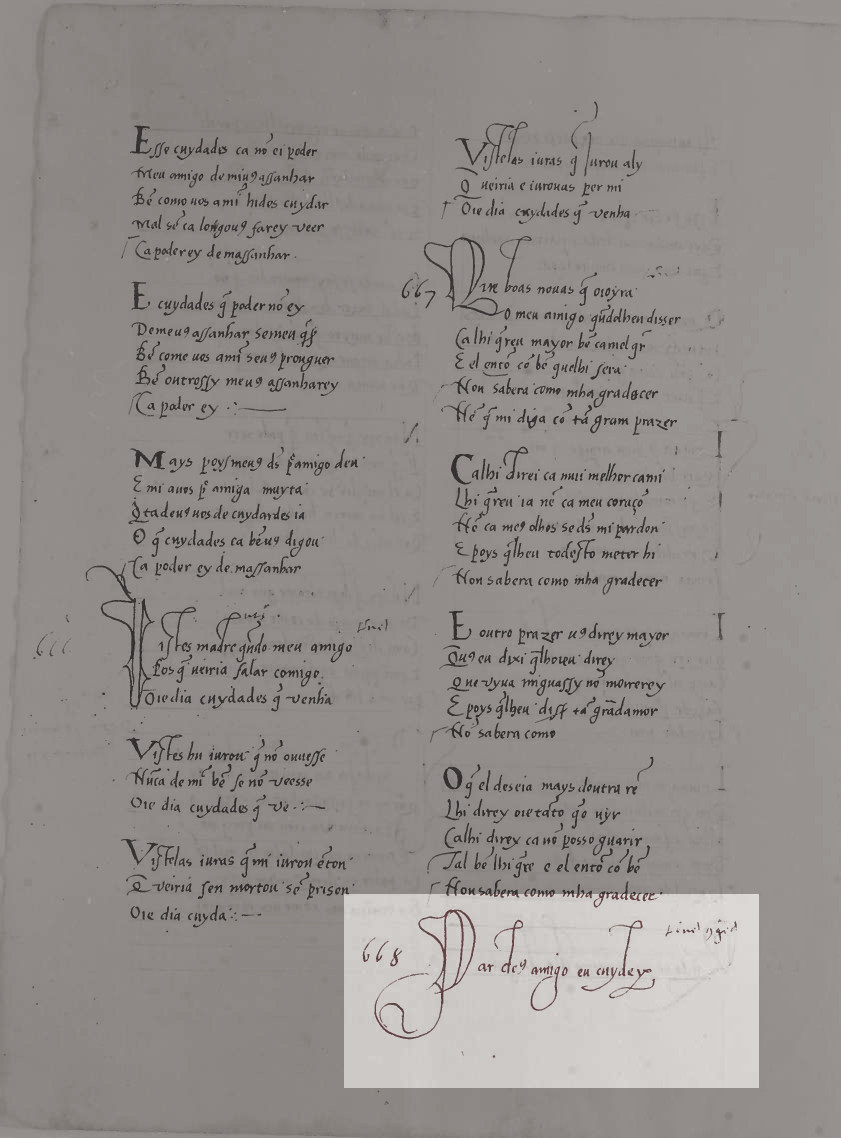 Esse cuydades ca nõ ei poder
Meu amigo de miuꝯ assanhar
Bẽ como uos a mĩ hides cuydar
Mal sẽ ca louguꝯ farey veer
Ca poder ey de massanhar.
E cuydades q̃ poder nõ ey
Demeuꝯ assanhar
Bẽ come uos amĩ seuꝯ prouguer
Bẽ outrossy meuꝯ assanharey
Ca poder ey
Mays poys meuꝯ ds amigo deu
E mi a uos amiga muyta
de cuydardes ia
O q̃ cuydades ca bẽuꝯ digou
Ca poder ey de massanhar
666
Uistes madre qũdo meu amigo
Pos q̃ ueiria falar comigo.
Oie dia cuydades q̃ venha
Vistes hu iurou q̃ nõ ouuesse
Nũca de mĩ bẽ se nõ veesse
Oie dia cuydades q̃ ve
Vistelas iuras q̃ mi iurou ẽton
Q̃ veiria sen mortou sẽ prison
Oie dia cuyda
Vistelas iuras q̃ iurou aly
Q̃ ueiria e iurouas per mi
Oie dia cuydades q̃ venha
667
boas nouas q̃ oioyra
O meu amigo disser
Ca lhi q̃reu mayor bẽ camel q̃r
E el entõ cõ bẽ quelhi sera
Non sabera como mha gradecer
Nẽ q̃ mi diga cõ tã gram prazer
Calhi direi ca mui melhor cami
Lhi q̃reu ia nẽ ca meu coraçõ
Nẽ ca meꝯ olhos se dꝯ mi perdon
E poys q̃lheu todesto meter hi
Non sabera como mha gradecer
E outro prazer uꝯ direy mayor
Quꝯ eu dixi q̃lhoieu direy
Que vyua miguassy nõ morrerey
E poys q̃lheu diss tã grãdamor
Nõ sabera como
O q̃ el deseia mays doutra rẽ
Lhi direy oie tãto q̃o uyr
Calhi direy ca nõ posso guarir
Tal bẽ lhi q̃re e el entõ cõ bẽ
Non sabera como mha gradecer
668
Par deꝯ amigo eu cuydey